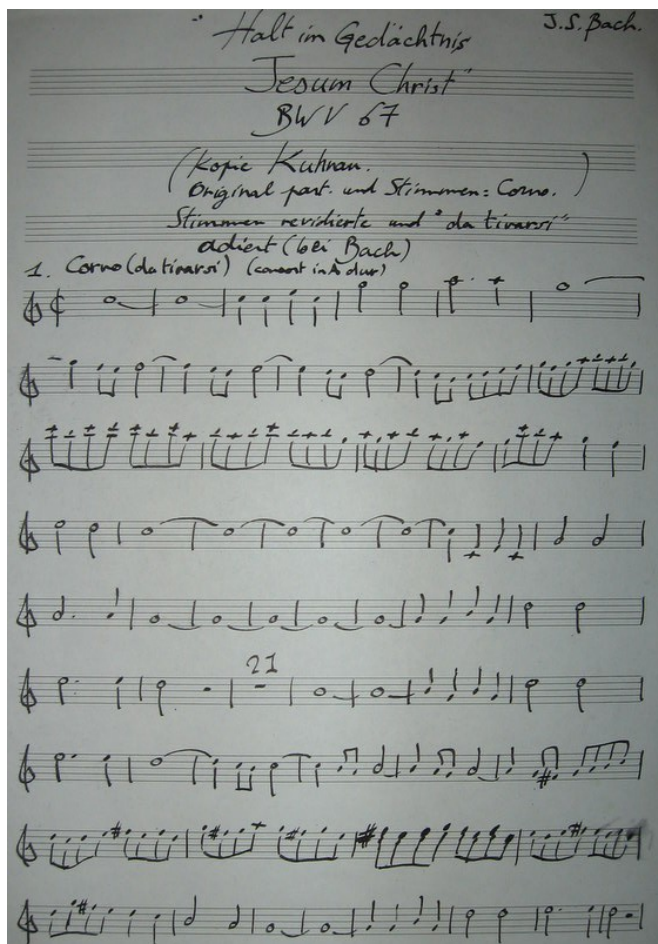 "Halt im Gedächtnis
J.S. Bach.
Jesum Christ"
BWV 67
(Kopie Kuhnau.
Original part. und Stimmen: Corno.)
Stimmen revidierte und "da tirarsi"
adiert (bei Bach)
1. Corno (da tirarsi) (concert in A dur)
21